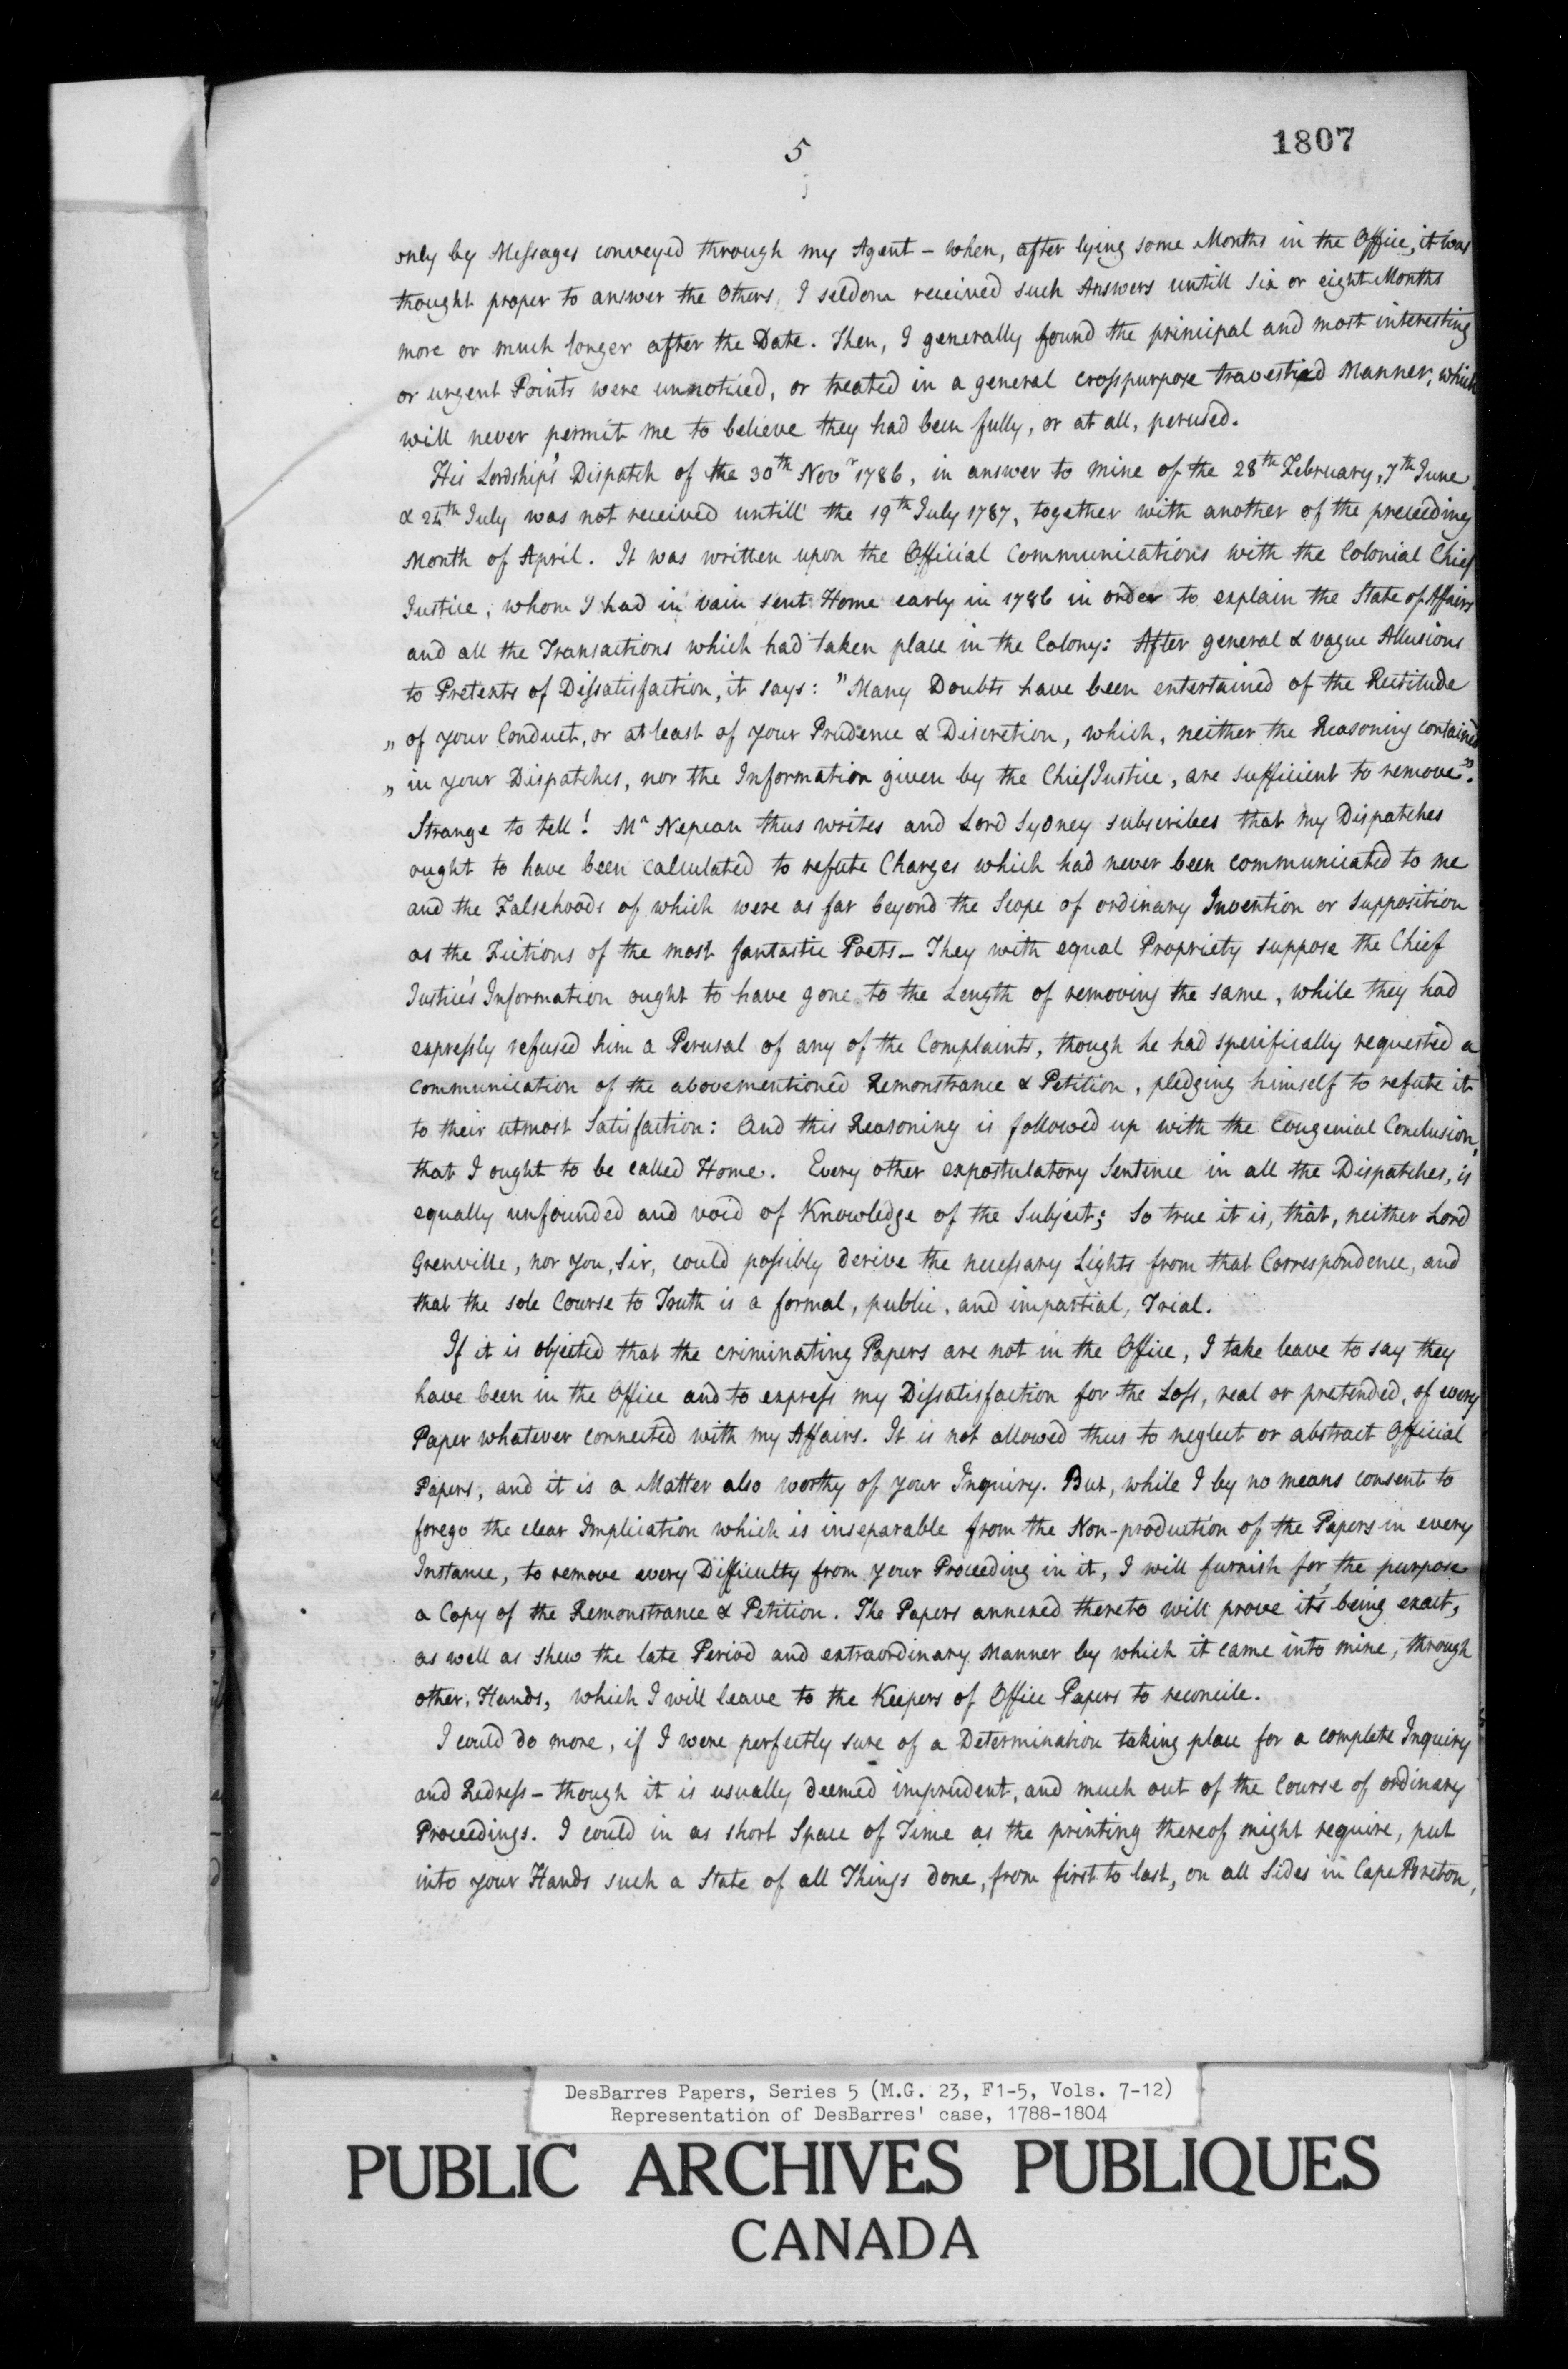 5
1807
only by Messages conveyed through my Agent – when, after lying some Months in the Office, it was
thought proper to answer the Others, I seldom received such Answers untill six or eight Months
more or much longer after the Date. Then, I generally found the principal and most interesting
or urgent Points were unnoticed, or treated in a general crosspurpose travestied Manner, which
will never permit me to believe they had been fully, or at all, perused.
His Lordship's Dispatch of the 30th Novr 1786, in answer to mine of the 28th February, 7th June
& 24th July was not received untill the 19th July 1787, together with another of the preceeding
Month of April. It was written upon the Official Communications with the Colonial Chief
Justice, whom I had in vain sent Home early in 1786 in order to explain the State of Affairs
and all the Transactions which had taken place in the Colony: After general & vague Allusions
to Pretexts of Dissatisfaction, it says: "Many Doubts have been entertained of the Rectitude
„ of your Conduct, or at least of your Prudence & Discretion, which, neither the Reasoning contained
„ in your Dispatches, nor the Information given by the Chief Justice, are sufficient to remove".
Strange to tell! Mr Nepean thus writes and Lord Sydney subscribes that my Dispatches
ought to have been calculated to refute Charges which had never been communicated to me
and the Falsehoods of which were as far beyond the Scope of ordinary Invention or Supposition
as the Fictions of the most fantastic Poets – They with equal Propriety suppose the Chief
Justice's Information ought to have gone to the Length of removing the same, while they had
expressly refused him a Perusal of any of the Complaints, though he had specifically requested a
Communication of the abovementioned Remonstrance & Petition, pledging himself to refute it
to their utmost Satisfaction: And this Reasoning is followed up with the Congenial Conclusion,
that I ought to be called Home. Every other expostulatory Sentence in all the Dispatches, is
equally unfounded and void of Knowledge of the Subject; So true it is, that, neither Lord
Grenville, nor you, Sir, could possibly derive the necessary Lights from that Correspondence, and
that the sole Course to Truth is a formal, public, and impartial, Trial.
If it is objected that the criminating Papers are not in the Office, I take leave to say they
have been in the Office and to express my Dissatisfaction for the Loss, real or pretended, of every
Paper whatever connected with my Affairs. It is not allowed thus to neglect or abstract Official
Papers, and it is a Matter also worthy of your Inquiry. But, while I by no means consent to
forego the clear Implication which is inseparable from the Non-production of the Papers in every
Instance, to remove every Difficulty from your Proceeding in it, I will furnish for the purpose
a Copy of the Remonstrance & Petition. The Papers annexed thereto will prove it's being exact,
as well as shew the late Period and extraordinary Manner by which it came into mine, through
other Hands, which I will leave to the Keepers of Office Papers to reconcile.
I could do more, if I were perfectly sure of a Determination taking place for a complete Inquiry
and Redress – though it is usually deemed imprudent, and much out of the Course of ordinary
Proceedings. I could in as short Space of Time as the printing thereof might require, put
into your Hands such a State of all Things done, from first to last, on all Sides in Cape Breton,
DesBarres Papers, Series 5 (M.G. 23, F1-5, Vols. 7-12)
Representation of DesBarres' case, 1788-1804
PUBLIC ARCHIVES PUBLIQUES
CANADA